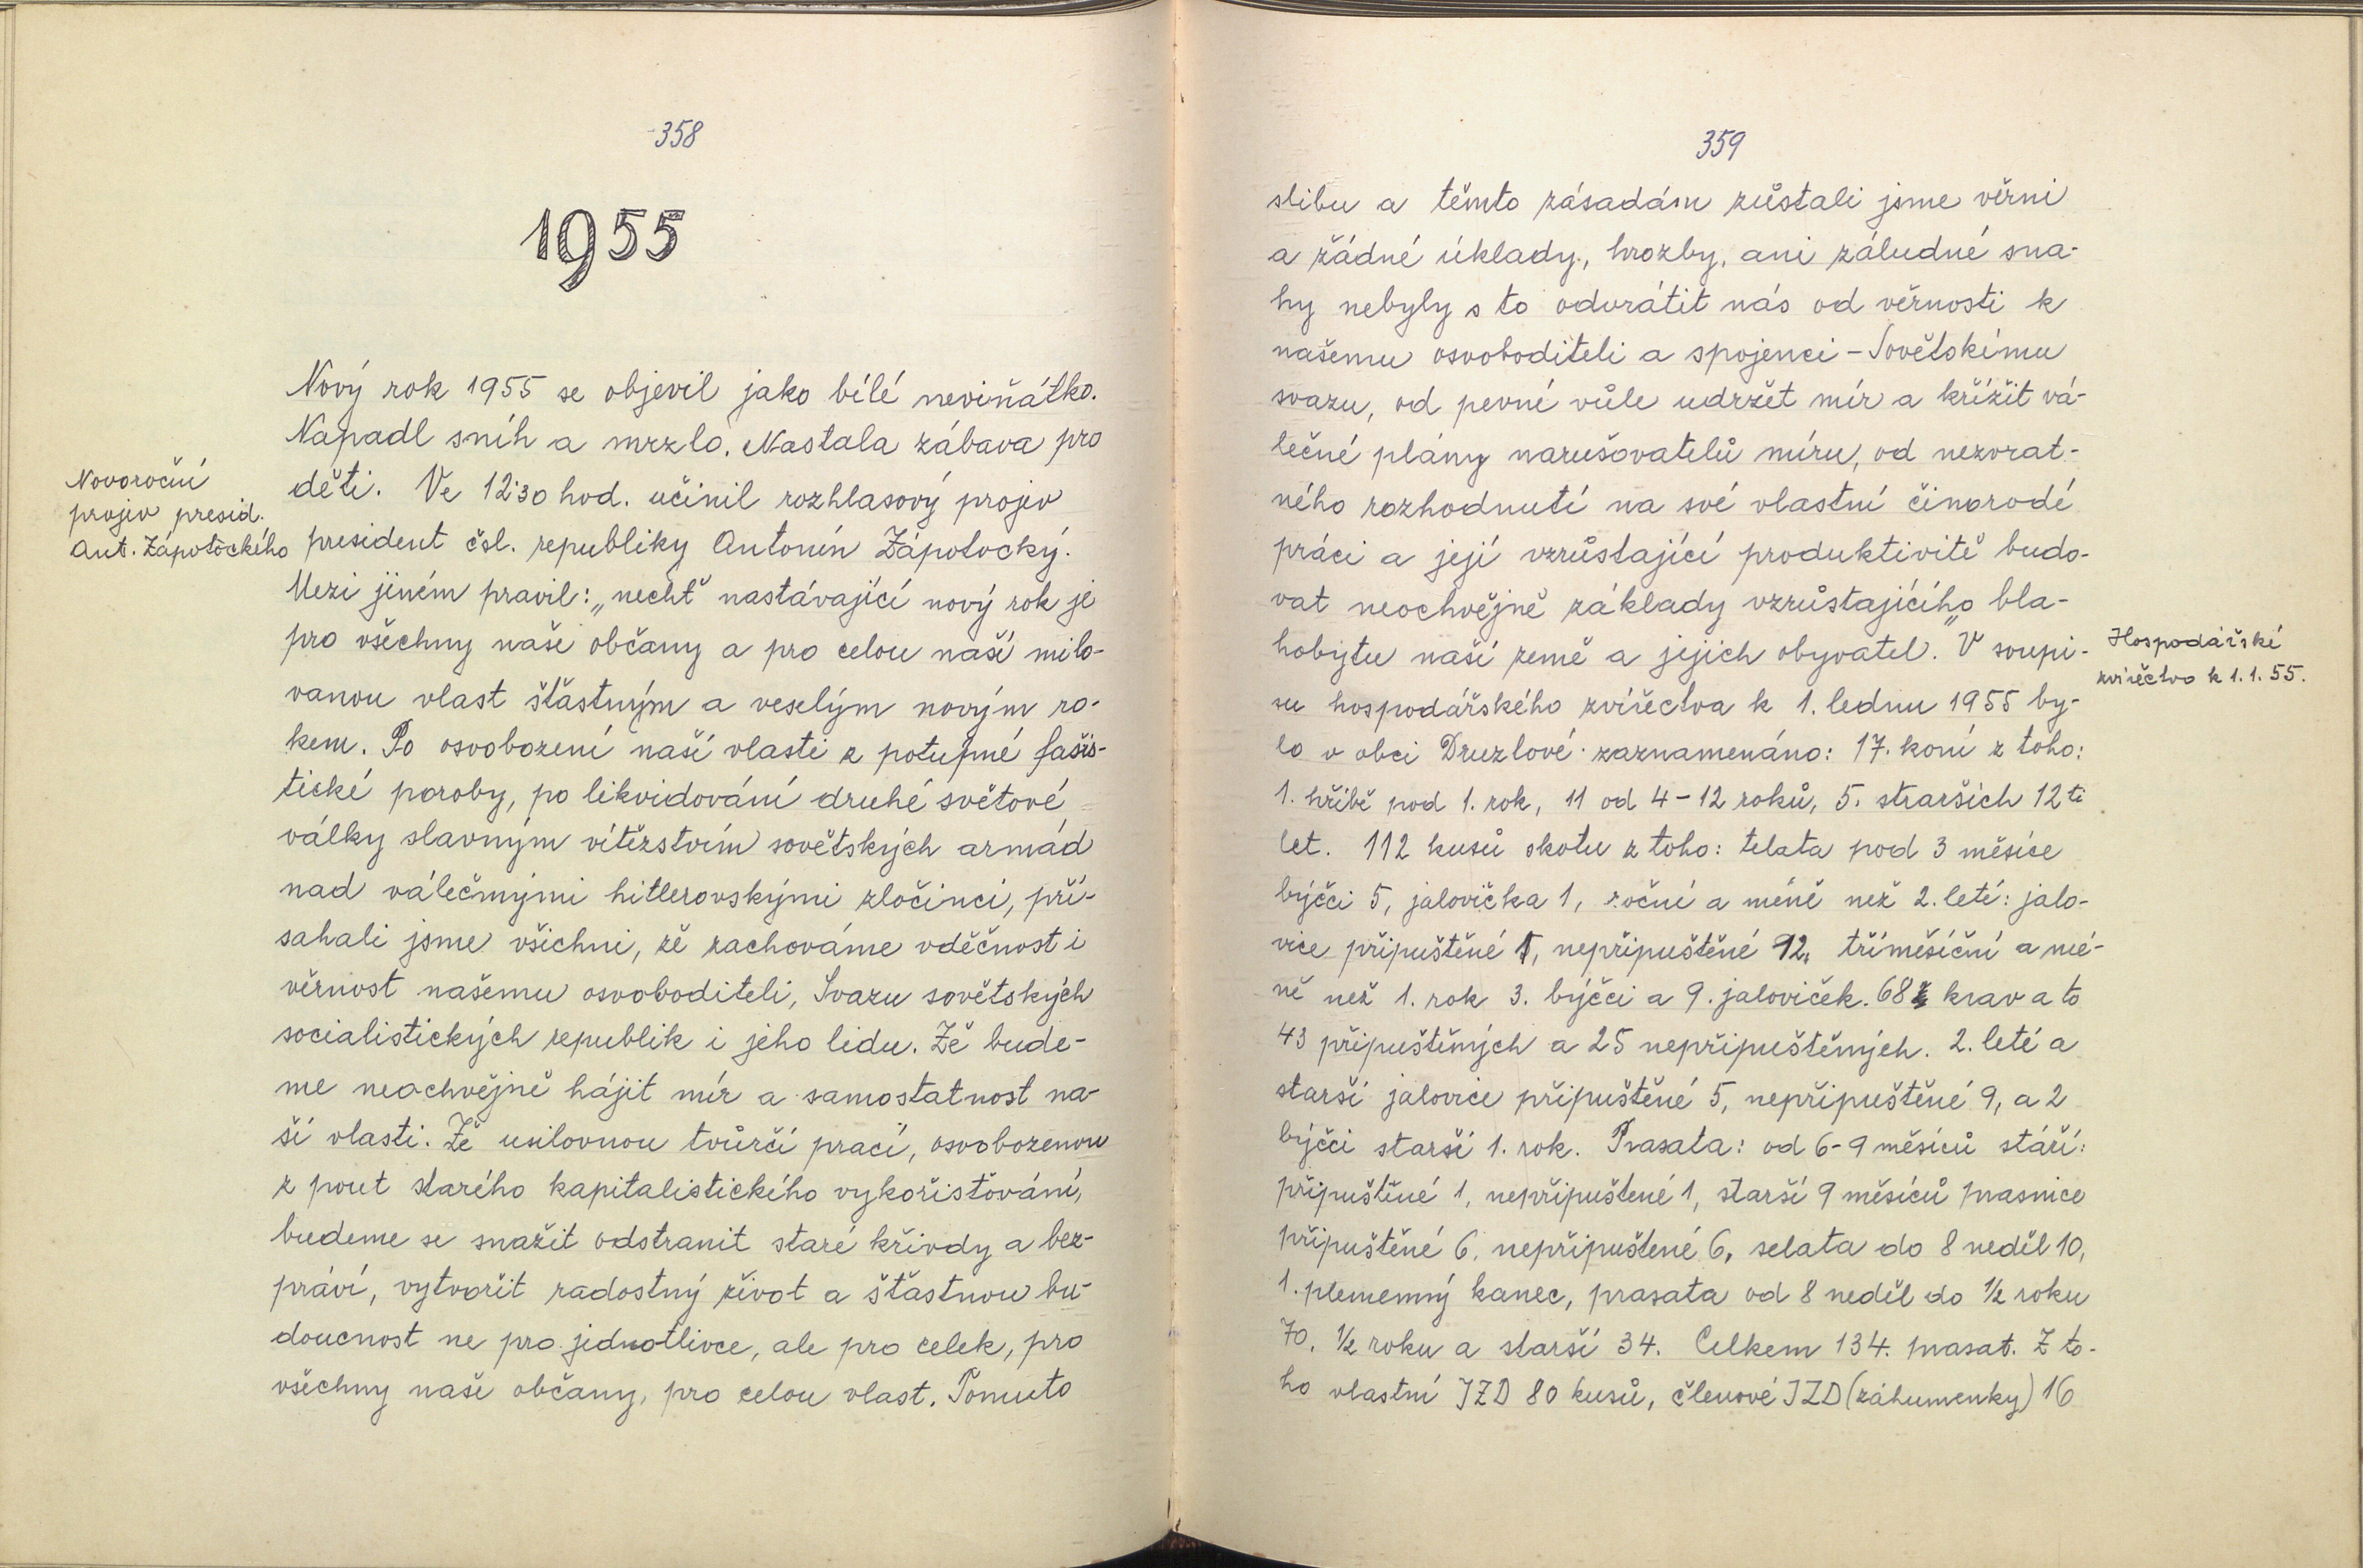 358
1955
Nový rok 1955 se objevil jako bílé neviňátko.
Napadl sníh a mrzlo. Nastala zábava pro
děti. Ve 12:30 hod. učinil rozhlasový projev
president čsl. republiky Antonín Zápotocký.
Mezi jiném pravil: „nechť nastávající nový rok je
pro všechny naše občany a pro celou naší milo-
vanou vlast šťastným a veselým novým ro-
kem. Po osvobození naší vlasti z potupné fašis-
tické poroby, po likvidování druhé světové
války slavným vítězstvím sovětských armád
nad válečnými hitlerovskými zločinci, pří-
sahali jsme všichni, že zachováme vděčnost i
věrnost našemu osvoboditeli, Svazu sovětských
socialistických republik i jeho lidu. Že bude-
me neochvějně hájit mír a samostatnost na-
ší vlasti. Že usilovnou tvůrčí prací, osvobozenou
z pout starého kapitalistického vykořisťování,
budeme se snažit odstranit staré křivdy a bez-
práví, vytvořit radostný život a šťastnou bu-
doucnost ne pro jednotlivce, ale pro celek, pro
všechny naše občany, pro celou vlast. Tomuto
Novoroční
projev presid.
Ant. Zápotockého
359
slibu a těmto zásadám zůstali jsme věrni
a žádné úklady, hrozby, ani záludné sna-
hy nebyly s to odvrátit nás od věrnosti k
našemu osvoboditeli a spojenci – Sovětskému
svazu, od pevné vůle udržet mír a křížit vá-
lečné plány narušovatelů míru, od nezvrat-
ného rozhodnutí na své vlastní činorodé
práci a její vzrůstající produktivitě budo-
vat neochvějně základy vzrůstajícího bla-
hobytu naší země a jejich obyvatel.“ V soupi-
su hospodářského zvířectva k 1. lednu 1955 by-
lo v obci Druzlové zaznamenáno: 17. koní z toho:
1. hříbě pod 1. rok, 11 od 4-12 roků, 5. straršich 12ti
let. 112 kusů skotu z toho: telata pod 3 měsíce
býčci 5, jalovička 1, roční a méně než 2. letí: jalo-
vice připuštěné 1, nepřipuštěné 12, tříměsíční a mé-
ně než 1. rok 3. býčci a 9. jaloviček. 68 krav a to
43 připuštěných a 25 nepřipuštěných. 2. leté a
starší jalovice připuštěné 5, nepřipuštěné 9, a 2
býčci starší 1. rok. Prasata: od 6-9 měsíců stáří:
připuštěné 1, nepřipuštené 1, starší 9 měsíců prasnice
připuštěné 6, nepřipuštené 6, selata do 8 neděl 10,
1. plemenný kanec, prasata od 8 neděl do 1/2 roku
70, 1/2 roku a starší 34. Celkem 134. prasat. Z to-
ho vlastní JZD 80 kusů, členové JZD (záhumenky) 16
Hospodářské
zvířectvo k 1. 1. 55.